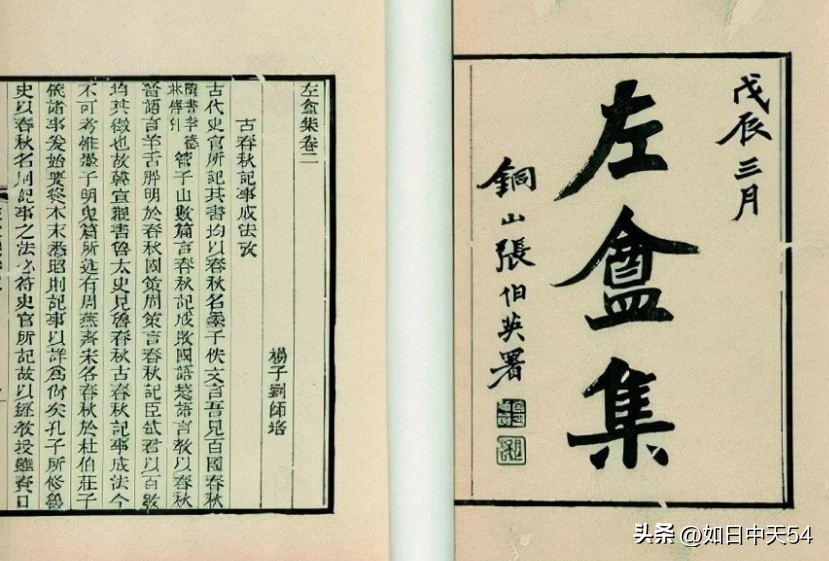 戊辰三月
左盦集
銅山張伯英署
左盦集卷二
古春秋記事成法攷
揚子劉師培
古代史官所記其書均以春秋名墨子佚文言吾見百國春秋
隋書李德林傳引管子山數篇言春秋記成敗國語楚語言教以春秋
晉語言羊舌肸明於春秋國策周策言春秋記臣弒君以百數
均其徵也故韓宣觀書魯太史見魯春秋古春秋記事成法今
不可考惟墨子明鬼篇所述有周燕齊宋各春秋於杜伯莊子
儀諸事爰始要終本末悉昭則記事以詳爲尚矣孔子所修魯
史以春秋名則記事之法必符史官所記故以經教授雖資口
头条 @如日中天54